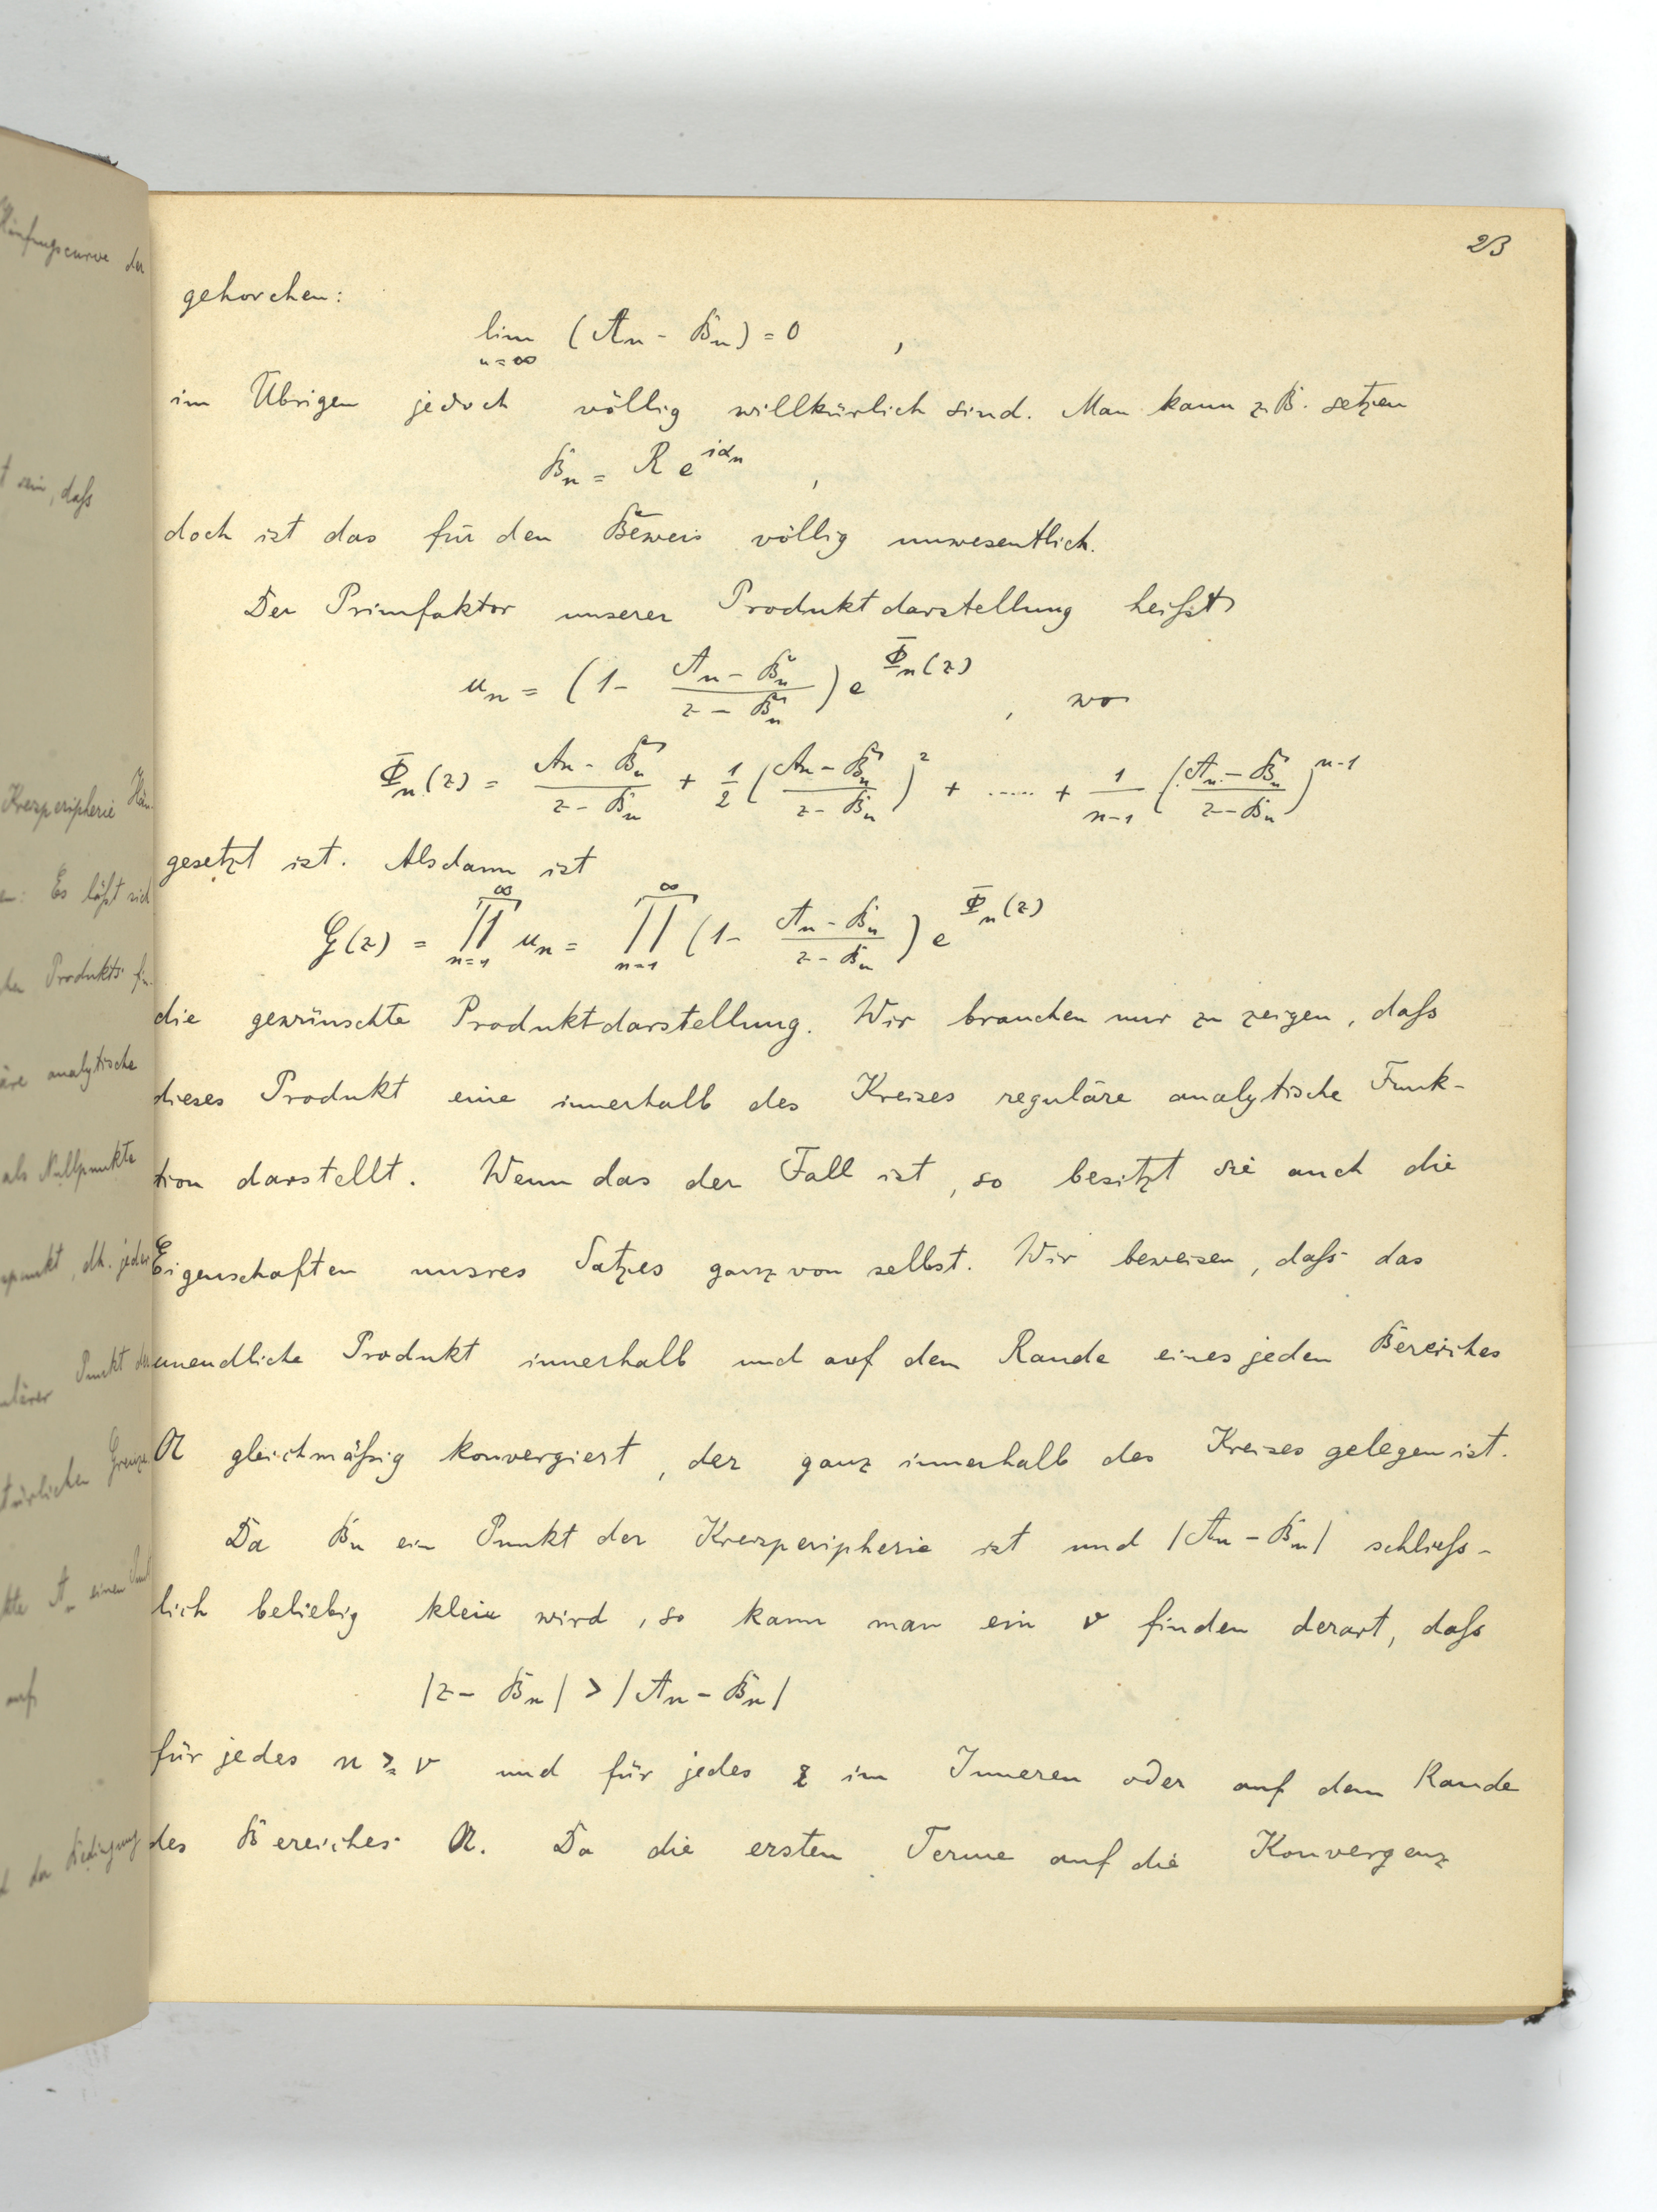 23
gehorchen:
lim (An - Bn) = 0 ,
n = ∞
im Übrigen jedoch völlig willkürlich sind. Man kann z. B. setzen
Bn = R e^{iαn} ,
doch ist das für den Beweis völlig unwesentlich.
Der Primfaktor unserer Produktdarstellung heißt
un = (1 - (An - Bn)/(z - Bn)) e^{Φn(z)} , wo
Φn(z) = (An - Bn)/(z - Bn) + 1/2 ((An - Bn)/(z - Bn))^2 + ..... + 1/(n-1) ((An - Bn)/(z - Bn))^{n-1}
gesetzt ist. Alsdann ist
G(z) = ∏_{n=1}^{∞} un = ∏_{n=1}^{∞} (1 - (An - Bn)/(z - Bn)) e^{Φn(z)}
die gewünschte Produktdarstellung. Wir brauchen nur zu zeigen, daß
dieses Produkt eine innerhalb des Kreises reguläre analytische Funk-
tion darstellt. Wenn das der Fall ist, so besitzt sie auch die
Eigenschaften unsres Satzes ganz von selbst. Wir beweisen, daß das
unendliche Produkt innerhalb und auf dem Rande eines jeden Bereiches
A gleichmäßig konvergiert, der ganz innerhalb des Kreises gelegen ist.
Da Bn ein Punkt der Kreisperipherie ist und |An - Bn| schließ-
lich beliebig klein wird, so kann man ein ν finden derart, daß
|z - Bn| > |An - Bn|
für jedes n ≥ ν und für jedes z im Inneren oder auf dem Rande
des Bereiches A. Da die ersten Terme auf die Konvergenz